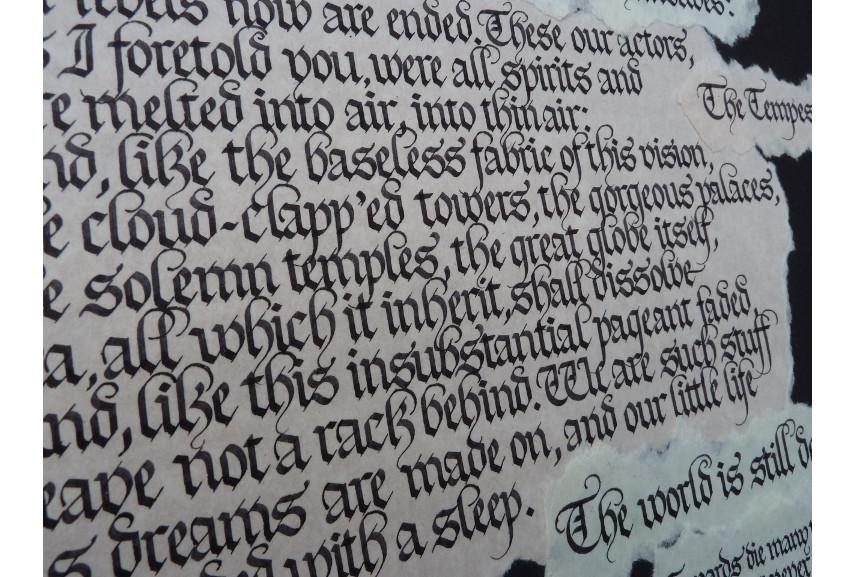 revels now are ended. These our actors,
s I foretold you, were all spirits and
re melted into air, into thin air:
nd, like the baseless fabric of this vision,
e cloud-clapp'ed towers, the gorgeous palaces,
e solemn temples, the great globe itself,
a, all which it inherit, shall dissolve
nd, like this insubstantial pageant faded,
eave not a rack behind. We are such stuff
s dreams are made on, and our little life
ded with a sleep.
The Tempes
The world is still de
wards die many